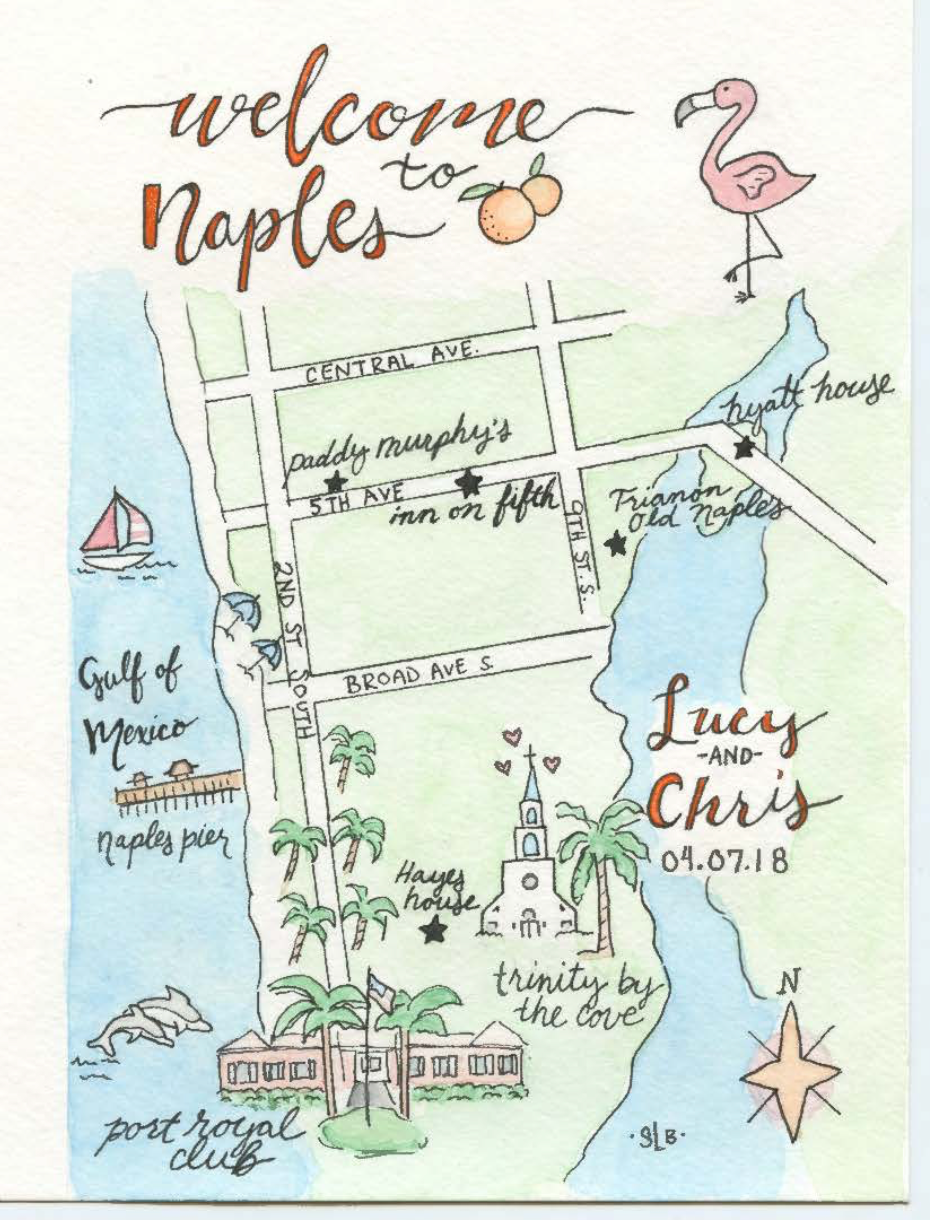 welcome
to
Naples
CENTRAL AVE.
hyatt house
paddy murphy's
5TH AVE
inn on fifth
9TH ST. S.
Trianon
Old Naples
2ND ST SOUTH
BROAD AVE S.
Gulf of
Mexico
naples pier
Lucy
-AND-
Chris
04.07.18
Hayes
house
trinity by
the cove
N
port royal
club
·SLB·